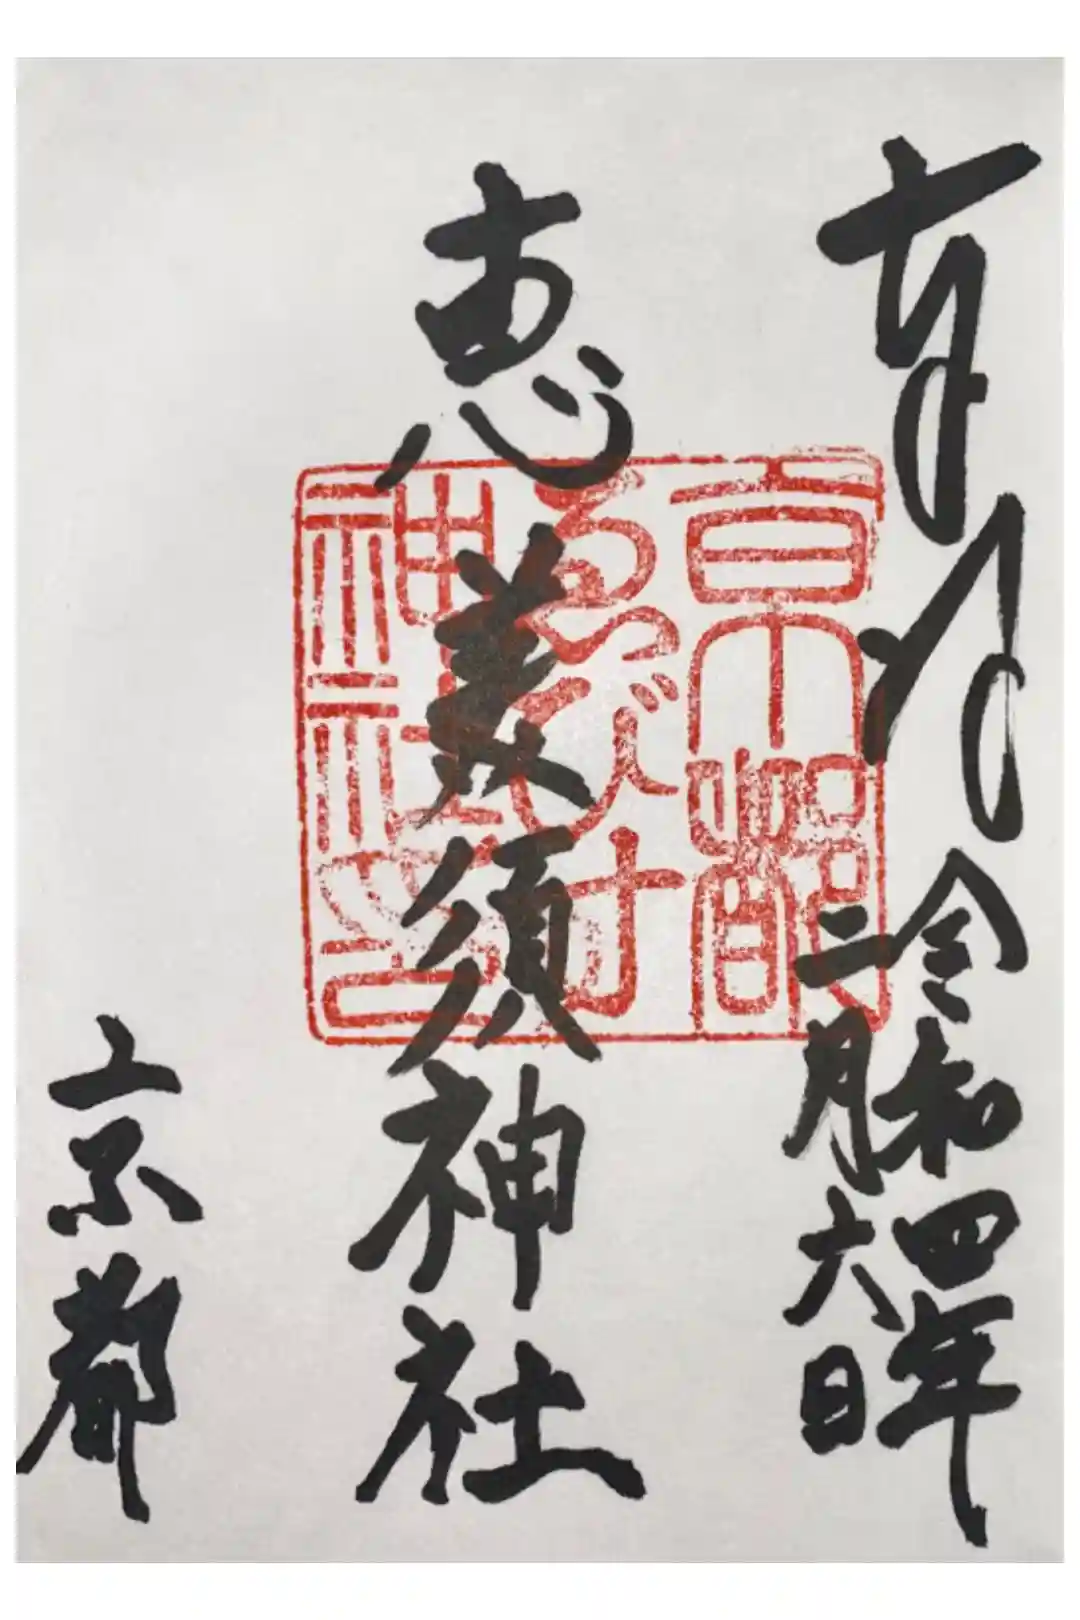 奉拝
令和四年
二月六日
恵美須神社
京都
京都
ゑびす
神社印